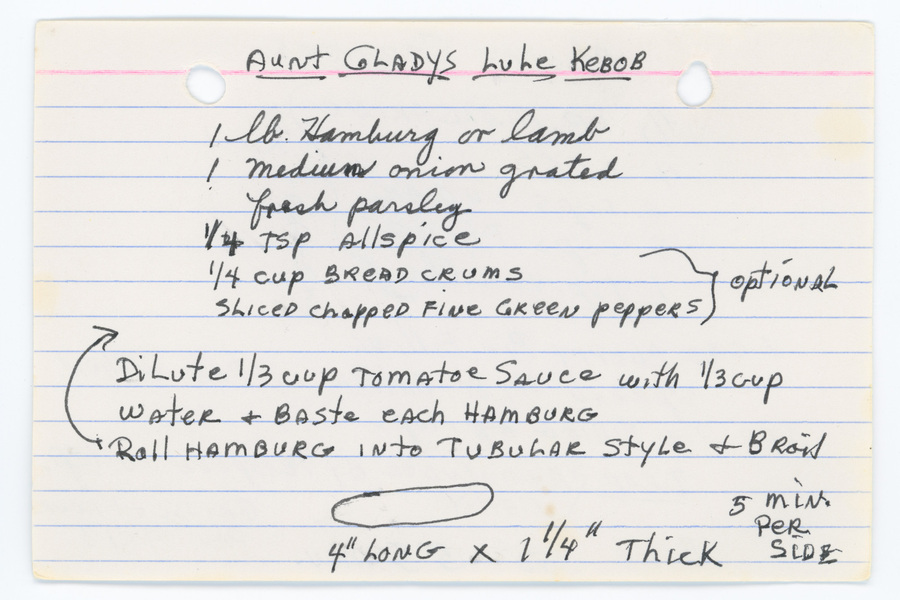 Aunt Gladys Lule Kebob
1 lb. Hamburg or lamb
1 medium onion grated
fresh parsley
1/4 TSP Allspice
1/4 cup BREAD CRUMS
SLICED chopped FINE GREEN peppers
optional
Dilute 1/3 cup Tomatoe Sauce with 1/3 cup
water + Baste each HAMBURG
Roll HAMBURG into TUBULAR style + Broil
5 min.
PER
SIDE
4" LONG x 1 1/4" Thick